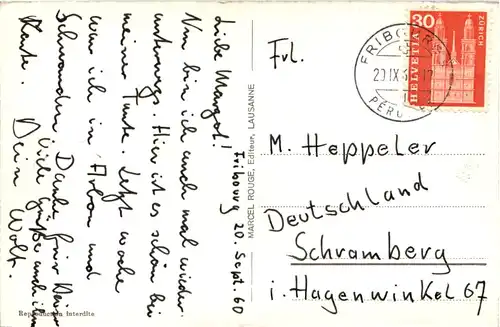 Fribourg 20. Sept. 60
Liebe Margot!
Nun bin ich auch mal wieder
unterwegs. Hier ist es schön bei
meiner Tante. Letzte Woche
war ich in Arbon und
Schwanden. Danke für Deine
Karte. Viele Grüße
Dein Wolf.
Reproduction interdite
MARCEL ROUGE, Editeur, LAUSANNE
FRIBOURG
20.IX.
HELVETIA
30
ZÜRICH
Frl.
M. Heppeler
Deutschland
Schramberg
i. Hagenwinkel 67